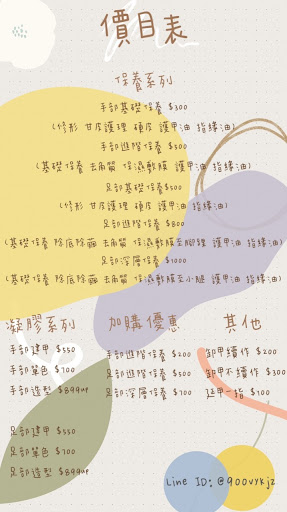 價目表
保養系列
手部基礎保養 $300
(修形 甘皮護理 硬皮 護甲油 指緣油)
手部進階保養 $500
(基礎保養 去角質 保濕敷膜 護甲油 指緣油)
足部基礎保養$500
(修形 甘皮護理 硬皮 護甲油 指緣油)
足部進階保養 $800
(基礎保養 除底除繭 去角質 保濕敷膜至腳踝 護甲油 指緣油)
足部深層保養 $1000
(基礎保養 除底除繭 去角質 保濕敷膜至小腿 護甲油 指緣油)
凝膠系列
手部建甲 $550
手部單色 $700
手部造型 $899up
足部建甲 $550
足部單色 $700
足部造型 $899up
加購優惠
手部進階保養 $200
足部進階保養 $500
足部深層保養 $700
其他
卸甲續作 $200
卸甲不續作 $300
延甲一指 $100
Line ID: @900vykjz